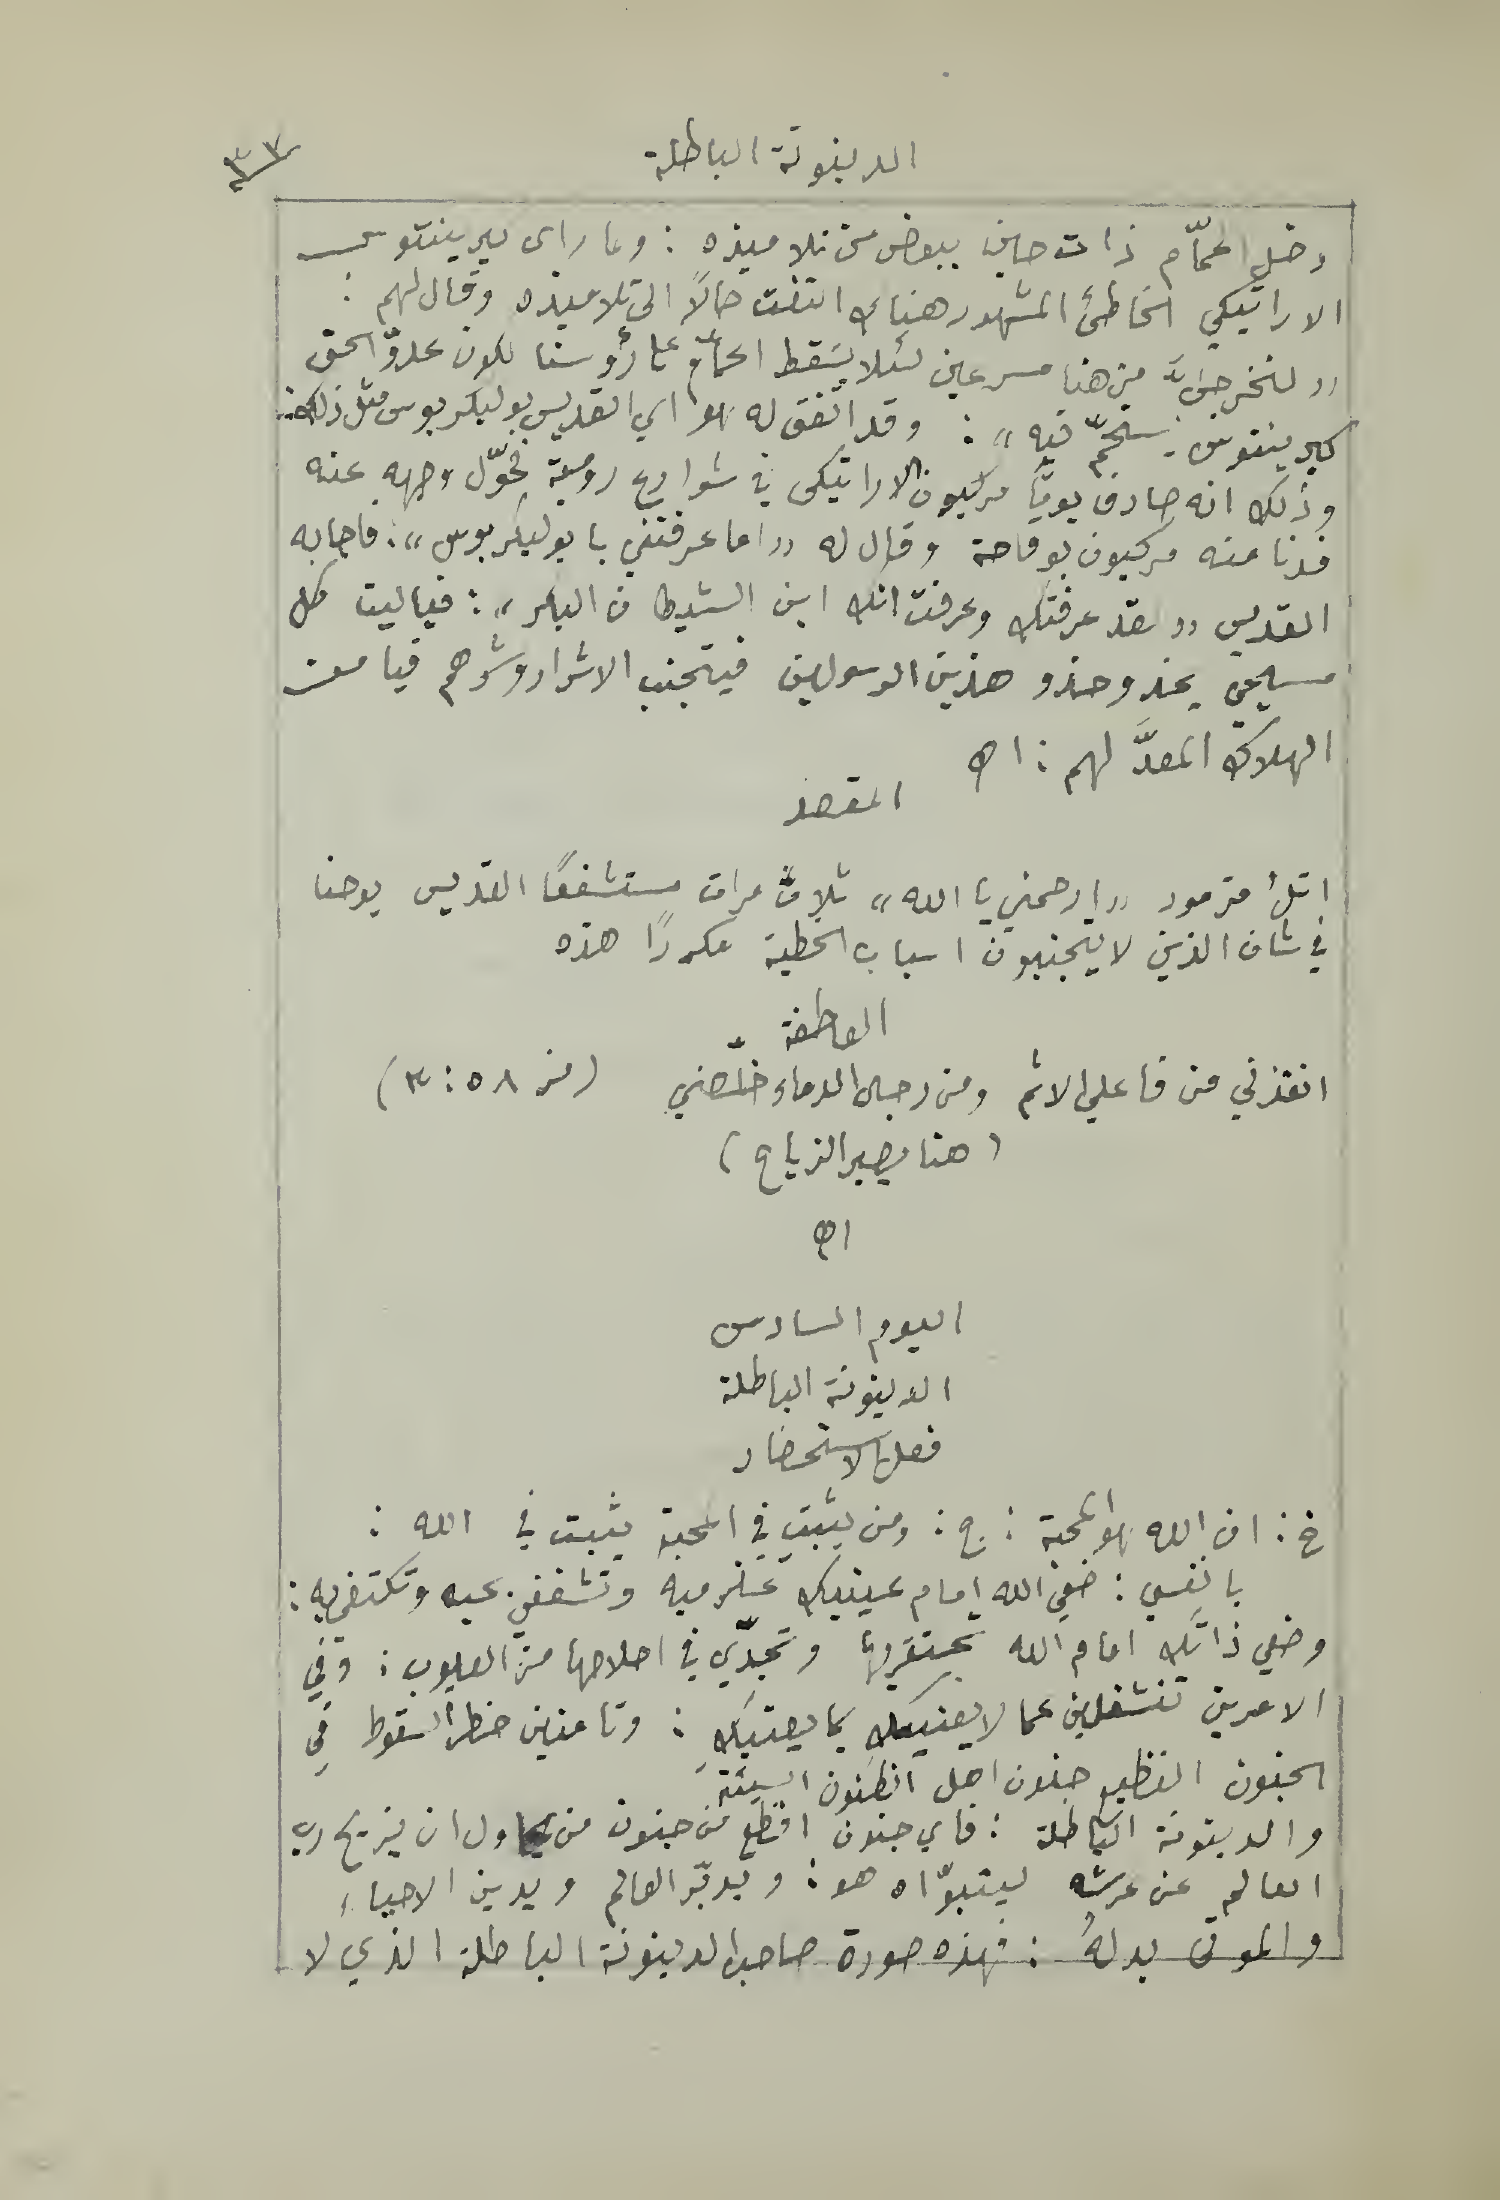 الدينونة الباطلة
٣٧
دخل الحمّام ذات حين ببعض من تلاميذه : ولما راى كيرينتوس
الاراتيكي الخاطئ المشهور هناك التفت حالاً الى تلاميذه وقال لهم :
« لنخرجنَّ من هنا مسرعين لئلا يسقط الحمّام على رؤوسنا لكون عدوّ الحق
كيرينتوس يستحمّ فيه » : وقد اتفق له هو اي القديس بوليكربوس مثل ذلك :
وذلك انه صادف يومًا مركيون الاراتيكي في شوارع رومية فحوّل وجهه عنه
فدنا منه مركيون بوقاحة وقال له « اما عرفتني يا بوليكربوس » : فاجابه
القديس « لقد عرفتك وعرفت انك ابن الشيطان البكر » : فياليت كل
مسيحي يحذو حذو هذين الرسولين فيتجنب الاشرار وشرهم فيامن
الهلاك المعدَّ لهم : اه
المقصد
اتلُ مزمور « ارحمني يا الله » ثلاث مرات مستشفعًا القديس يوحنا
في شان الذين لا يتجنبون اسباب الخطية مكررًا هذه
العاطفة
انقذني من فاعلي الاثم ومن رجال الدماء خلّصني (مز ٥٨ : ٣)
(هنا يصير الزياح)
اه
اليوم السادس
الدينونة الباطلة
فعل الاستحضار
خ : ان الله هو المحبة : ج : ومن يثبت في المحبة يثبت في الله :
يا نفسي : ضعي الله امام عينيك فتكرميه وتشغفي بحبه وتكتفي به :
وضعي ذاتك امام الله فتحتقريها وتجدّي في اصلاحها من العيوب : وفي
الامرين تنشغلين عما لا يعنيك بما يعنيكِ : وتامنين خطر السقوط في
الجنون الفظيع جنون اهل الظنون السيئة
والدينونة الباطلة : فاي جنون افظع من جنون من يحاول ان يزيح رب
العالم عن عرشه ليتبوّاه هو : ويدبّر العالم ويدين الاحياء
والموتى بدلهُ : فهذه صورة صاحب الدينونة الباطلة الذي لا